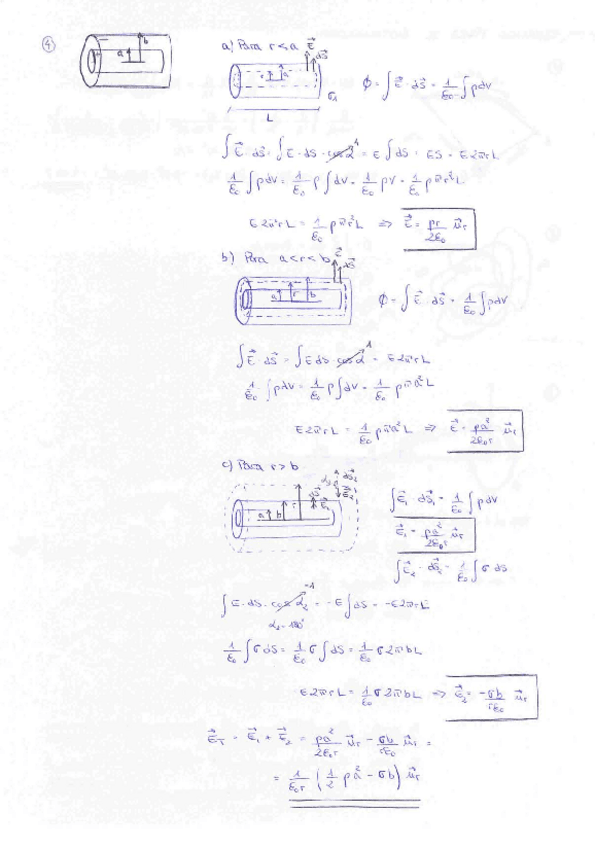 ④
a b
a) Para r < a
E⃗ dS⃗
r a
L
ϕ = ∫ E⃗ · dS⃗ = 1/ε₀ ∫ ρ dV
∫ E⃗ · dS⃗ = ∫ E · dS · cos α = E ∫ dS = ES = E 2πrL
1/ε₀ ∫ ρ dV = 1/ε₀ ρ ∫ dV = 1/ε₀ ρV = 1/ε₀ ρπr²L
E 2πrL = 1/ε₀ ρπr²L ⇒ E⃗ = ρr/2ε₀ u⃗r
b) Para a < r < b
E⃗ dS⃗
a r b
ϕ = ∫ E⃗ · dS⃗ = 1/ε₀ ∫ ρ dV
∫ E⃗ · dS⃗ = ∫ E dS · cos α = E 2πrL
1/ε₀ ∫ ρ dV = 1/ε₀ ρ ∫ dV = 1/ε₀ ρπa²L
E 2πrL = 1/ε₀ ρπa²L ⇒ E⃗ = ρa²/2ε₀r u⃗r
c) Para r > b
a b r
∫ E⃗₁ · dS⃗₁ = 1/ε₀ ∫ ρ dV
E⃗₁ = ρa²/2ε₀r u⃗r
∫ E⃗₂ · dS⃗₂ = 1/ε₀ ∫ σ dS
∫ E · dS · cos α₂ = -E ∫ dS = -E 2πrL
-1
α₂ = 180°
1/ε₀ ∫ σ dS = 1/ε₀ σ ∫ dS = 1/ε₀ σ 2πbL
E 2πrL = 1/ε₀ σ 2πbL ⇒ E⃗₂ = -σb/rε₀ u⃗r
E⃗T = E⃗₁ + E⃗₂ = ρa²/2ε₀r u⃗r - σb/rε₀ u⃗r =
= 1/ε₀r (1/2 ρa² - σb) u⃗r